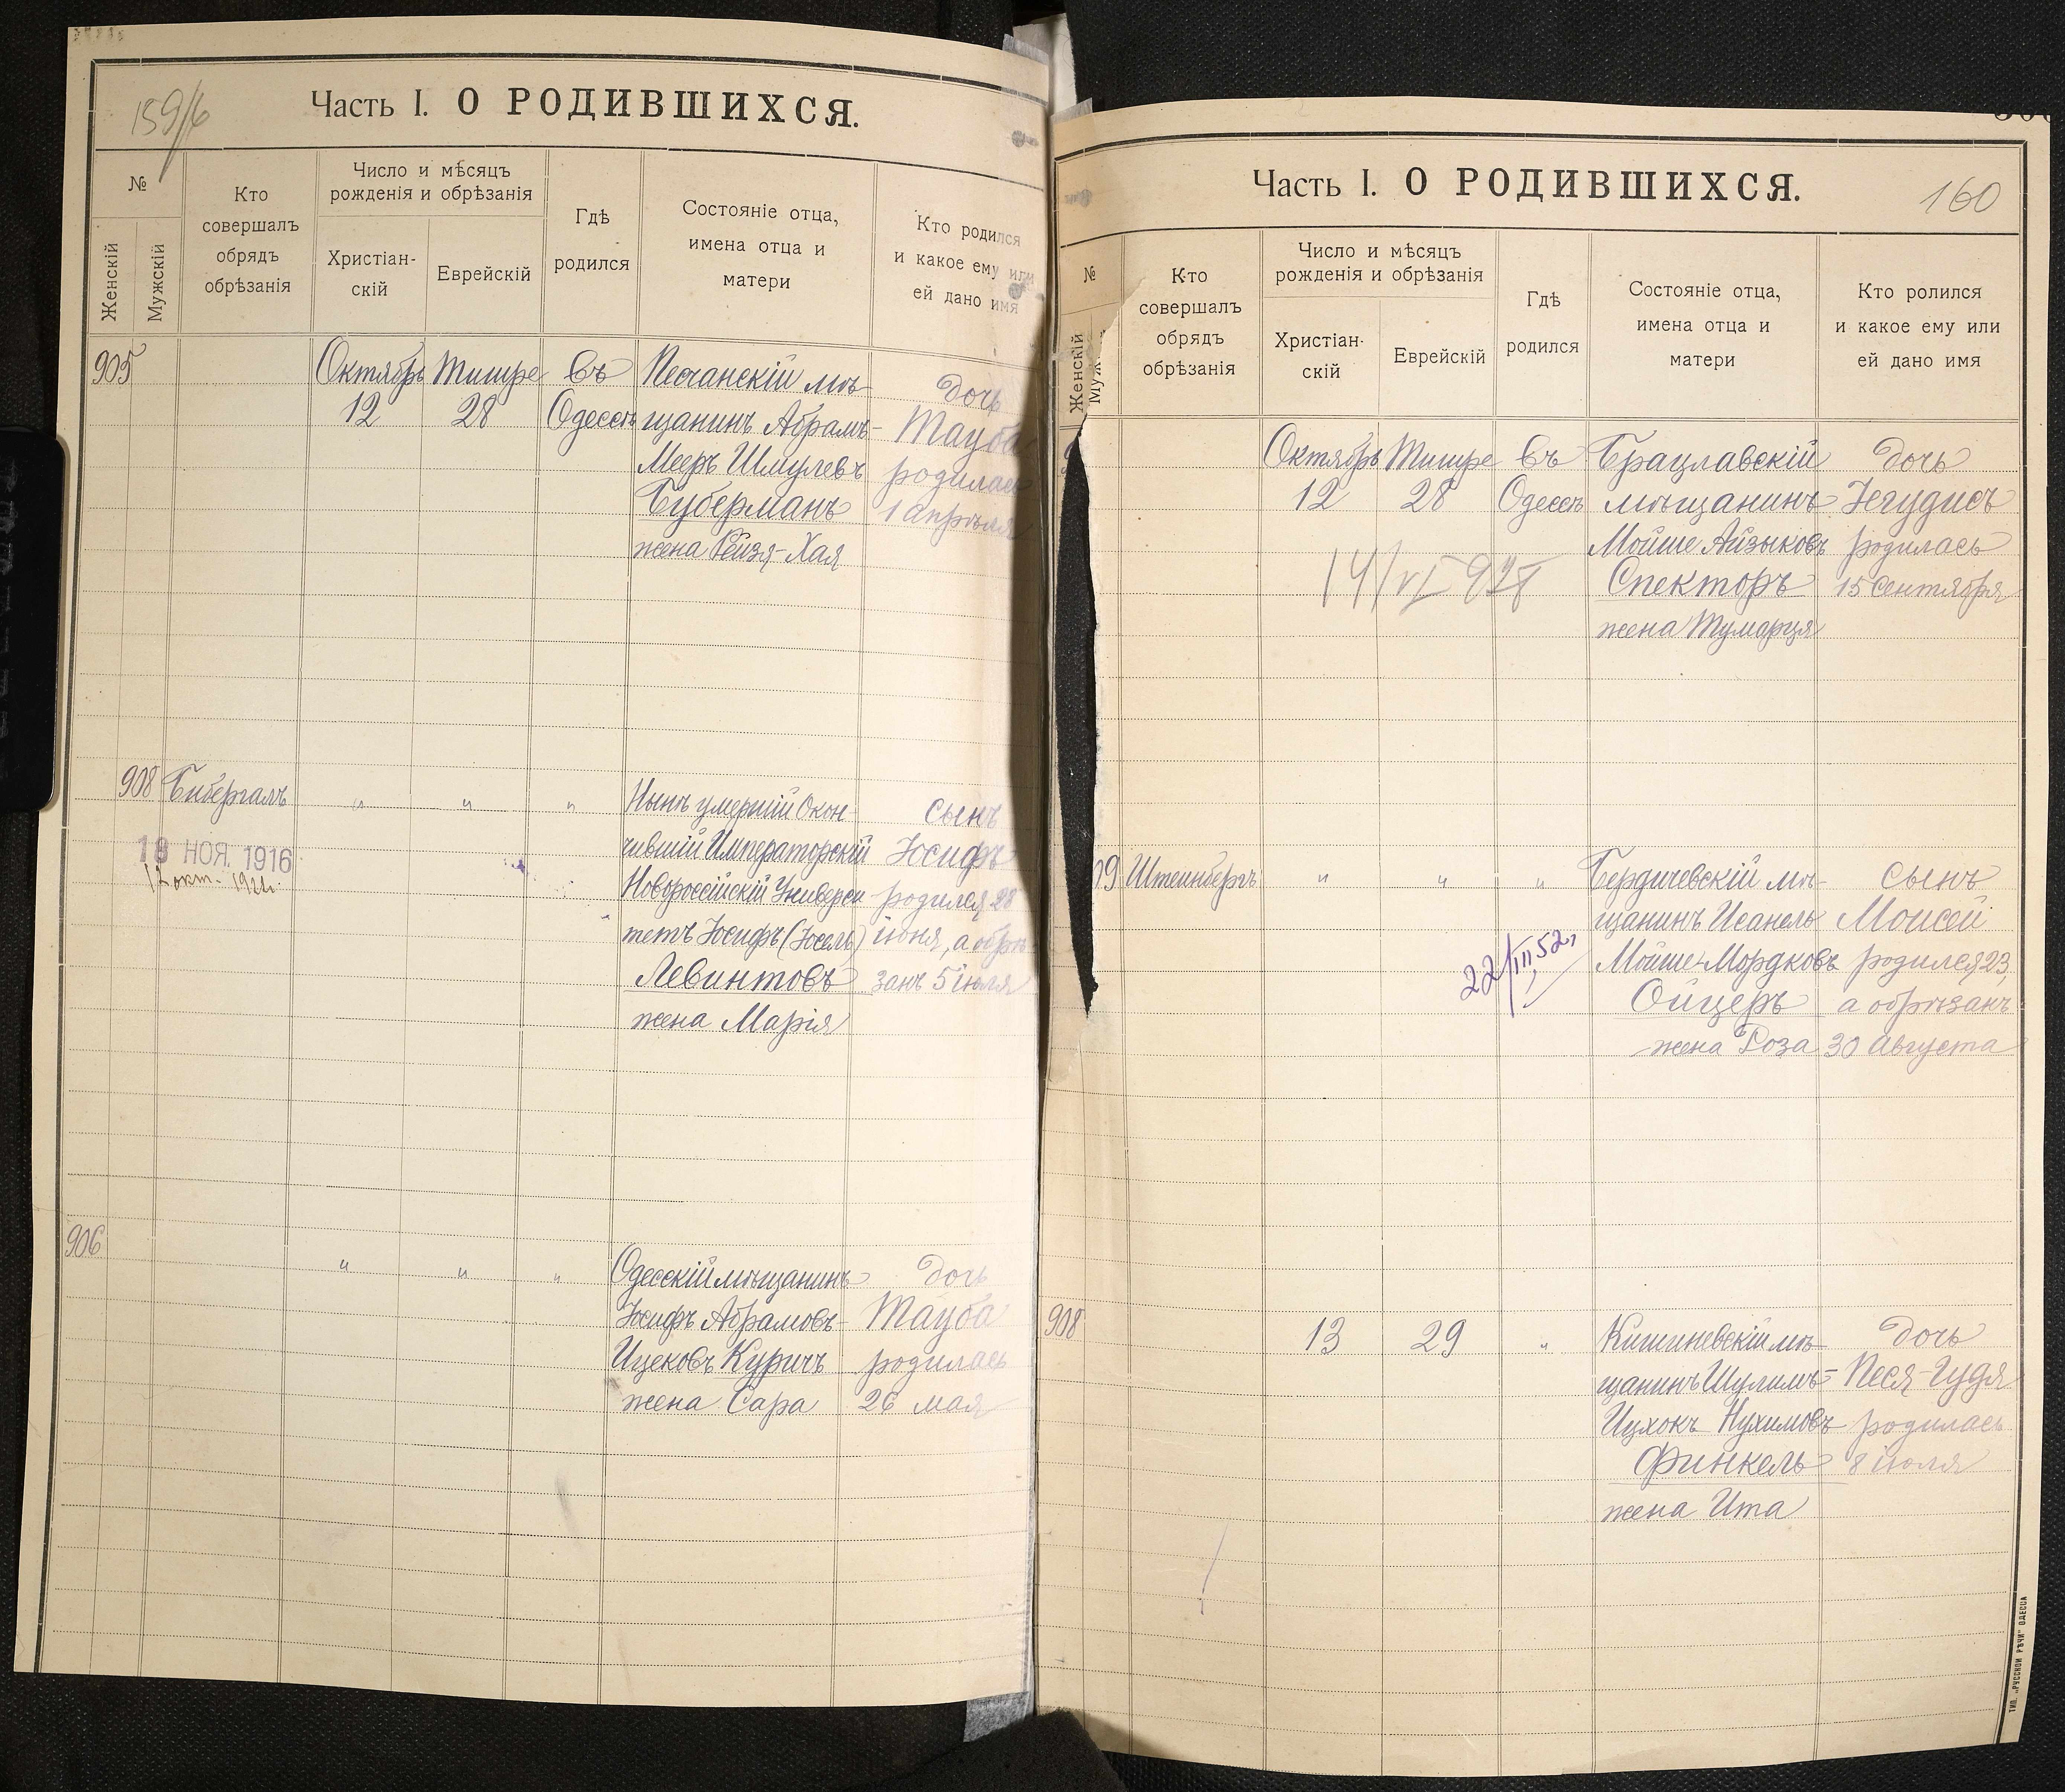 159/6
Часть I. О РОДИВШИХСЯ.
№
Женскій
Мужскій
Кто
совершалъ
обрядъ
обрѣзанія
Число и мѣсяцъ
рожденія и обрѣзанія
Христіан-
скій
Еврейскій
Гдѣ
родился
Состояніе отца,
имена отца и
матери
Кто родился
и какое ему или
ей дано имя
905
Октябрь
12
Тишре
28
Въ
Одессѣ
Песчанскій мѣ-
щанинъ Абрамъ-
Мееръ Шмулевъ
Буберманъ
жена Рейзя-Хая
дочь
Тауба
родилась
1 апрѣля
908
Бибергалъ
18 НОЯ. 1916
12 окт. 192
"
"
"
Нынѣ умершій Окон-
чившій Императорскій
Новороссійскій Универси-
тетъ Іосифъ (Іосель)
Левинтовъ
жена Марія
сынъ
Іосифъ
родился 28
іюня, а обрѣ-
занъ 5 іюля
906
"
"
"
Одесскій мѣщанинъ
Іосифъ Абрамовъ-
Ицековъ Куричъ
жена Сара
дочь
Тауба
родилась
26 мая
Часть I. О РОДИВШИХСЯ.
160
№
Женскій
Муж
Кто
совершалъ
обрядъ
обрѣзанія
Число и мѣсяцъ
рожденія и обрѣзанія
Христіан-
скій
Еврейскій
Гдѣ
родился
Состояніе отца,
имена отца и
матери
Кто ролился
и какое ему или
ей дано имя
Октябрь
12
Тишре
28
Въ
Одессѣ
14/VI 928
Брацлавскій
мѣщанинъ
Мойше Айзыковъ
Спекторъ
жена Тумарця
дочь
Іегудисъ
родилась
15 Сентября
09
Штейнбергъ
"
"
"
22/III 52,
Бердичевскій мѣ-
щанинъ Исанель
Мойше-Мордковъ
Ойцеръ
жена Роза
сынъ
Моисей
родился 23,
а обрѣзанъ
30 Августа
908
13
29
"
Кишиневскій мѣ-
щанинъ Шулимъ-
Ицхокъ Нухимовъ
Финкель
жена Ита
дочь
Песя-Гудя
родилась
8 іюля
ТИП. „РУССКОЙ РѢЧИ" ОДЕССА